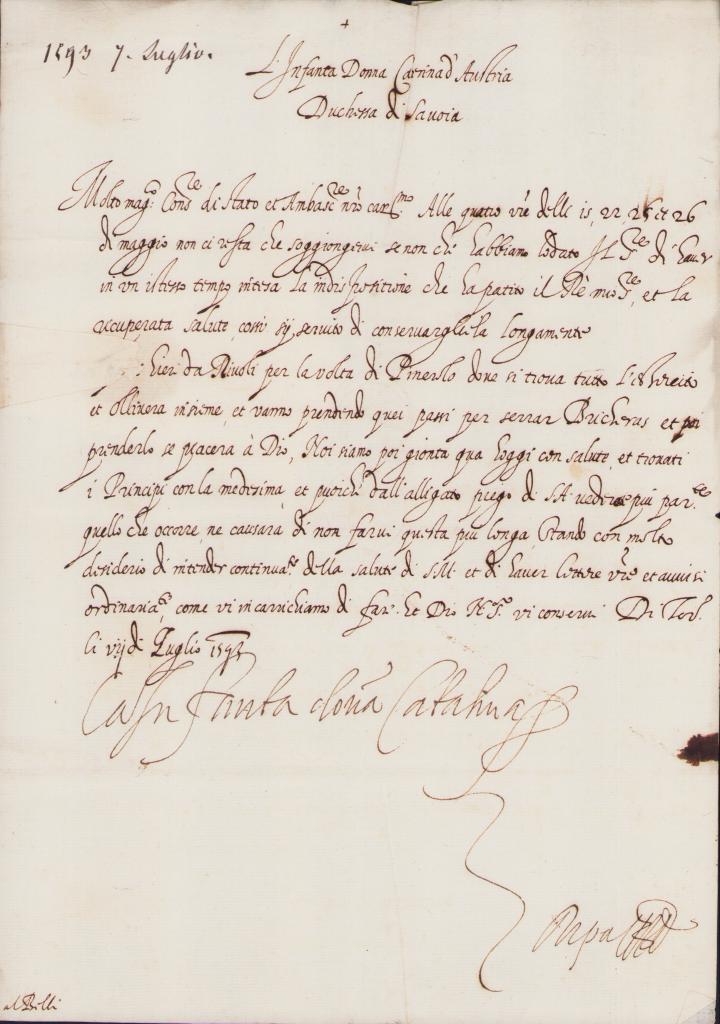 +
1593 7. Luglio.
L'Infanta Donna Caterina d'Austria
Duchessa di Savoia
Molto mag.co Cons.re di stato et Ambasc.re n̄ro car.mo Alle quatro v̄re delli is, 22, 25 et 26
di maggio non ci resta che soggiongervi se non che habbiamo lodato Il S.re di haver
in un istesso tempo intesa la indispositione che ha patito il Rè mio S.re, et la
recuperata salute, cossi sij servito di conservargliela longamente
hier da Rivoli per la volta di Pinerolo dove si trova tutto l'essercito
et Ollivera insieme, et vanno prendendo quei passi per serrar Bricheras et poi
prenderlo se piacerà à Dio, Noi siamo poi gionta qua hoggi con salute, et trovati
i Principi con la medesima, et poiche dall'alligato piego di S.A. vederete più par.te
quello che occorre, ne causarà di non farvi questa più longa, stando con molto
desiderio di intender continua.te della salute di S.M. et di haver lettere v̄re et avvisi
ordinaria.te, come vi incarrichiamo di far. Et Dio N.S. vi conservi Di Tor.o
li vij di Luglio 1593
La Infanta doña Catalina
Ripa
al Billi